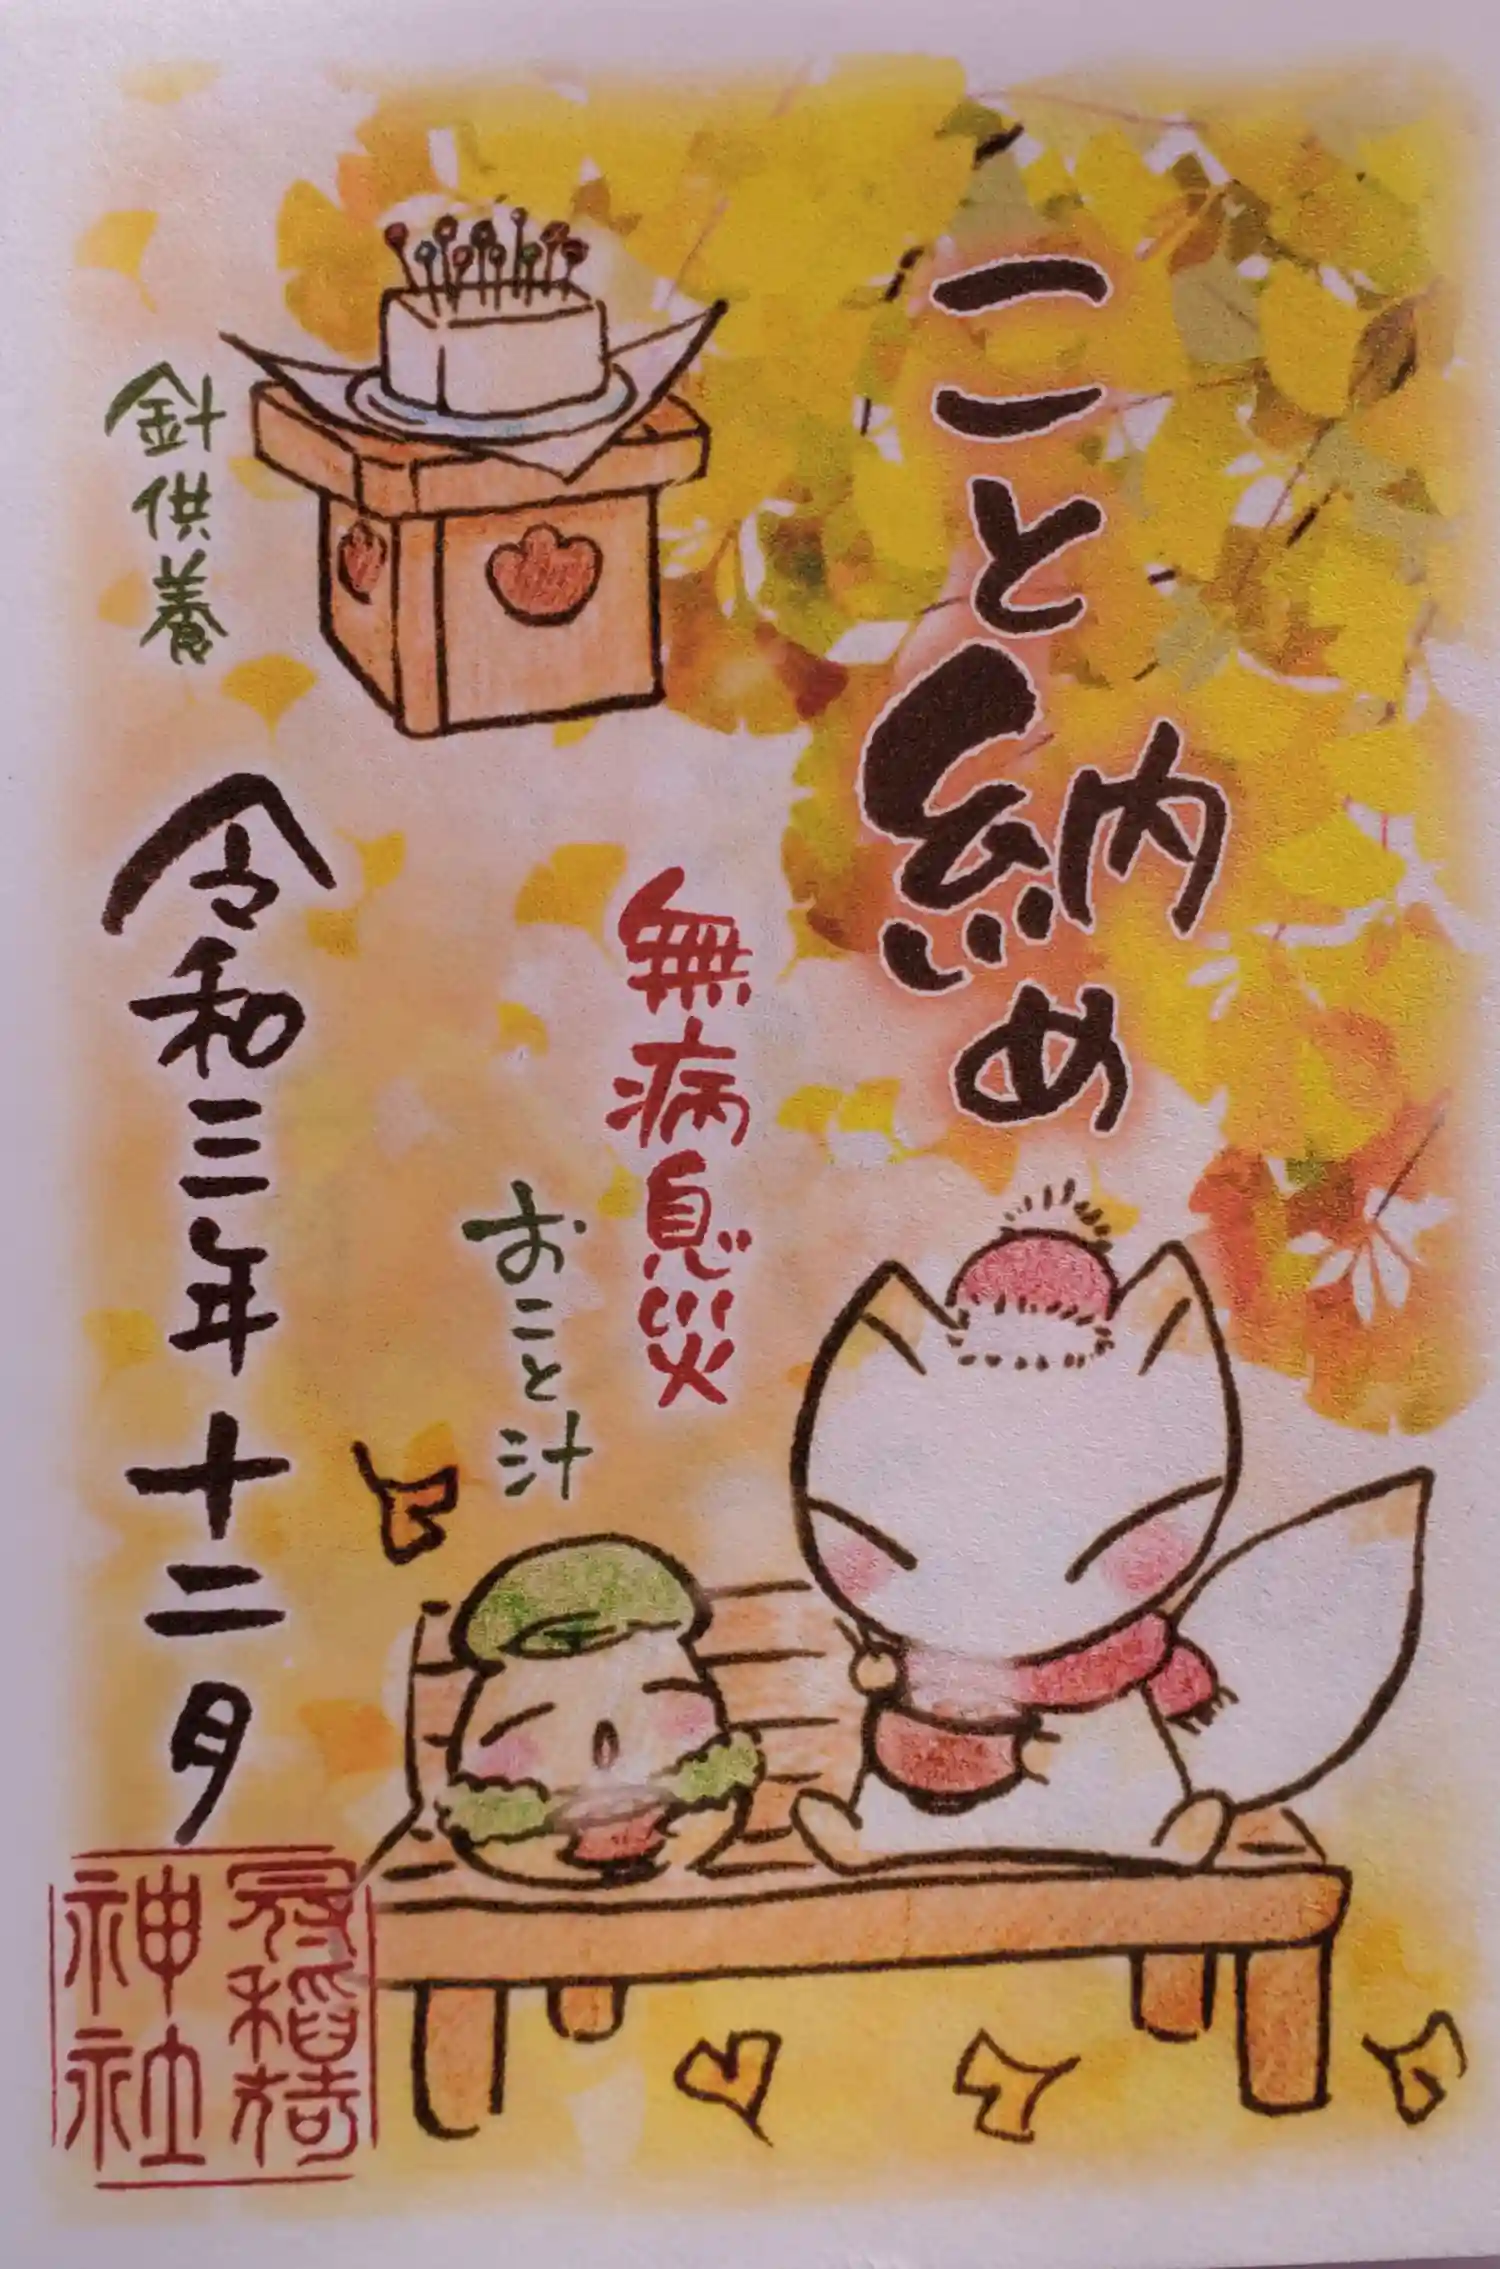 こと納め
無病息災
おこと汁
針供養
令和三年十二月
神社